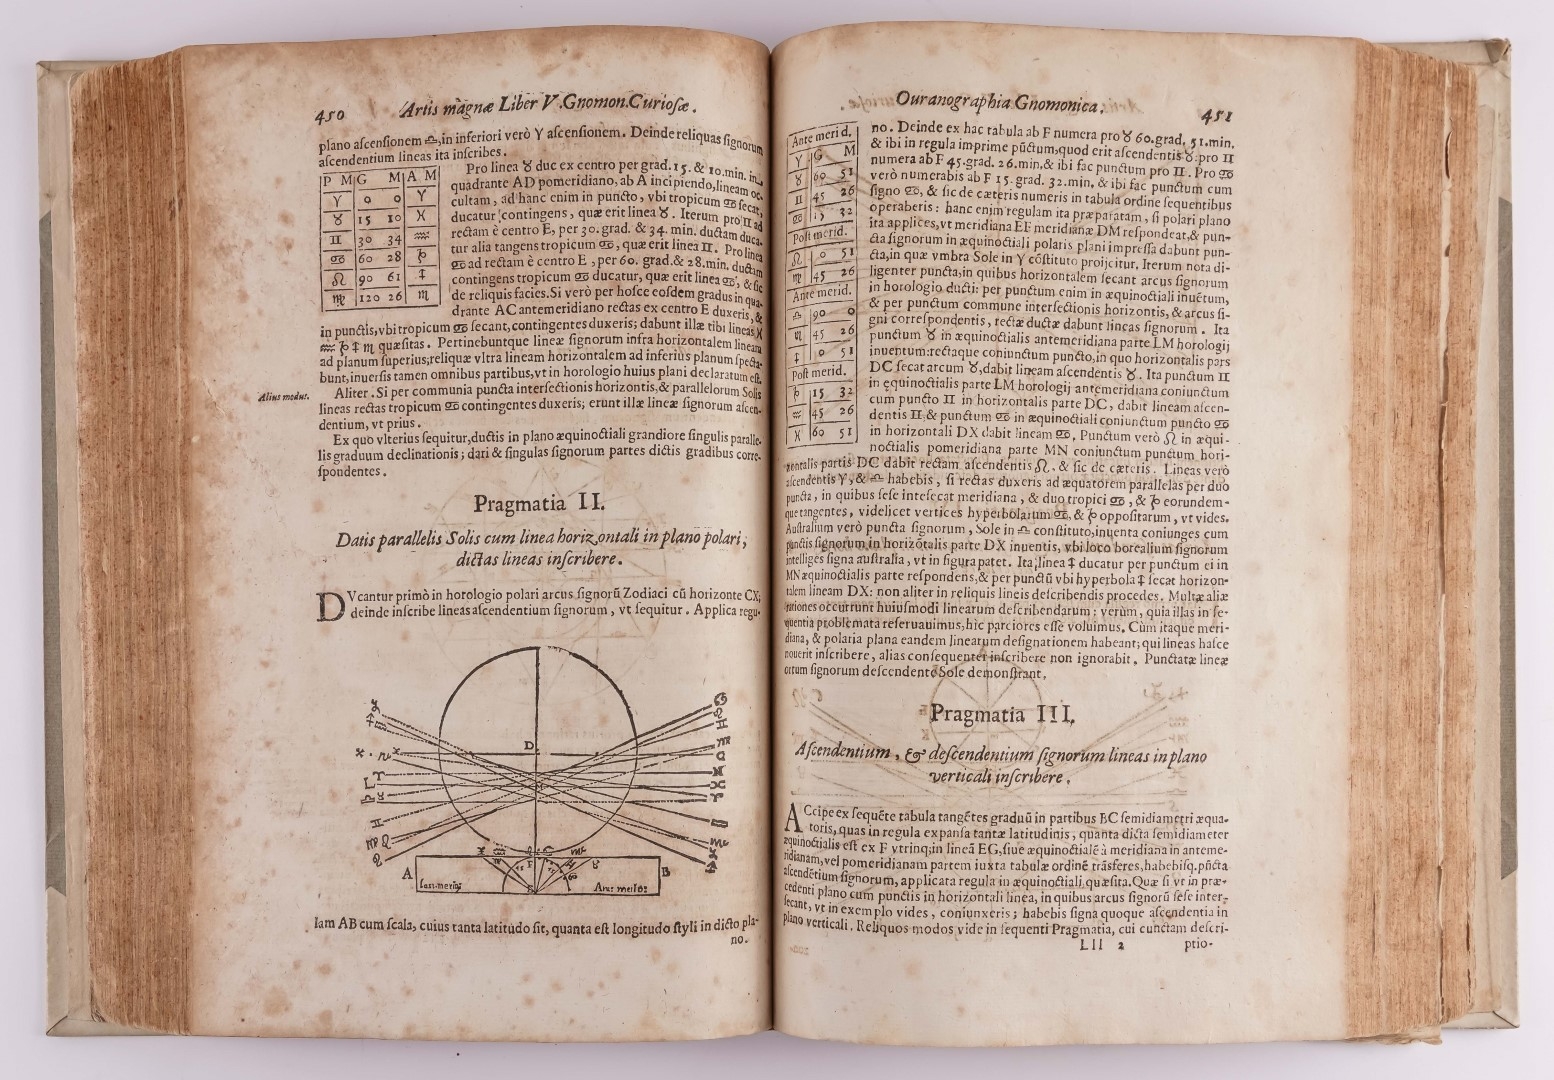 450 Artis magnæ Liber V. Gnomon. Curiosæ.
plano ascensionem ♎, in inferiori verò ♈ ascensionem. Deinde reliquas signorum
ascendentium lineas ita inscribes.
P M G M A M
♈ 0 0 ♈
♉ 15 10 ♓
♊ 30 34 ♒
♋ 60 28 ♑
♌ 90 61 ♐
♍ 120 26 ♏
Pro linea ♉ duc ex centro per grad. 15. & 10. min. in
quadrante AD pomeridiano, ab A incipiendo, lineam oc-
cultam, ad hanc enim in puncto, vbi tropicum ♋ secat,
ducatur contingens, quæ erit linea ♉. Iterum pro ♊ ad
rectam è centro E, per 30. grad. & 34. min. ductam duca-
tur alia tangens tropicum ♋, quæ erit linea ♊. Pro linea
♋ ad rectam è centro E, per 60. grad. & 28. min. ductam
contingens tropicum ♋ ducatur, quæ erit linea ♋, & sic
de reliquis facies. Si verò per hosce eosdem gradus in qua-
drante AC antemeridiano rectas ex centro E duxeris, &
in punctis, vbi tropicum ♋ secant, contingentes duxeris; dabunt illæ tibi lineas ♓
♒ ♑ ♐ ♏ quæsitas. Pertinebuntque lineæ signorum infra horizontalem lineam
ad planum superius; reliquæ vltra lineam horizontalem ad inferius planum specta-
bunt, inuersis tamen omnibus partibus, vt in horologio huius plani declaratum est.
Alius modus.
Aliter. Si per communia puncta intersectionis horizontis, & parallelorum Solis
lineas rectas tropicum ♋ contingentes duxeris; erunt illæ lineæ signorum ascen-
dentium, vt prius.
Ex quo vlterius sequitur, ductis in plano æquinoctiali grandiore singulis paralle-
lis graduum declinationis; dari & singulas signorum partes dictis gradibus corre-
spondentes.
Pragmatia II.
Datis parallelis Solis cum linea horizontali in plano polari,
dictas lineas inscribere.
DVcantur primò in horologio polari arcus signorũ Zodiaci cũ horizonte CX;
deinde inscribe lineas ascendentium signorum, vt sequitur. Applica regu-
D
A B
lam AB cum scala, cuius tanta latitudo sit, quanta est longitudo styli in dicto pla-
no.
Ouranographia Gnomonica. 451
Ante merid.
♈ G M
♉ 60 51
♊ 45 26
♋ 15 32
Post merid.
♌ 0 51
♍ 45 26
Ante merid.
♎ 90 0
♏ 45 26
♐ 0 51
Post merid.
♑ 15 32
♒ 45 26
♓ 60 51
no. Deinde ex hac tabula ab F numera pro ♉ 60. grad. 51. min.
& ibi in regula imprime pũctum, quod erit ascendentis ♉. pro ♊
numera ab F 45. grad. 26. min. & ibi fac punctum pro ♊. Pro ♋
verò numerabis ab F 15. grad. 32. min. & ibi fac punctum cum
signo ♋, & sic de cæteris numeris in tabula ordine sequentibus
operaberis: hanc enim regulam ita præparatam, si polari plano
ita applices, vt meridiana EF meridianæ DM respondeat, & pun-
cta signorum in æquinoctiali polaris plani impressa dabunt pun-
cta, in quæ vmbra Sole in ♈ cõstituto proijcitur. Iterum nota di-
ligenter puncta, in quibus horizontalem secant arcus signorum
in horologio ducti: per punctum enim in æquinoctiali inuētum,
& per punctum commune intersectionis horizontis, & arcus si-
gni correspondentis, rectæ ductæ dabunt lineas signorum. Ita
punctum ♉ in æquinoctialis antemeridiana parte LM horologij
inuentum: rectaque coniunctum puncto, in quo horizontalis pars
DC secat arcum ♉, dabit lineam ascendentis ♉. Ita punctum ♊
in equinoctialis parte LM horologij antemeridiana coniunctum
cum puncto ♊ in horizontalis parte DC, dabit lineam ascen-
dentis ♊ & punctum ♋ in æquinoctiali coniunctum puncto ♋
in horizontali DX dabit lineam ♋. Punctum verò ♌ in æqui-
noctialis pomeridiana parte MN coniunctum punctum hori-
zontalis partis DC dabit rectam ascendentis ♌. & sic de cæteris. Lineas verò
ascendentis ♈, & ♎ habebis, si rectas duxeris ad æquatorem parallelas per duo
puncta, in quibus sese intesecat meridiana, & duo tropici ♋, & ♑ eorundem-
que tangentes, videlicet vertices hyperbolarum ♋, & ♑ oppositarum, vt vides.
Australium verò puncta signorum, Sole in ♎ constituto, inuenta coniunges cum
punctis signorum in horizõtalis parte DX inuentis, vbi loco borealium signorum
intelliges signa australia, vt in figura patet. Ita linea ♐ ducatur per punctum ei in
MN æquinoctialis parte respondens, & per punctũ vbi hyperbola ♐ secat horizon-
talem lineam DX: non aliter in reliquis lineis describendis procedes. Multæ aliæ
rationes occurrunt huiusmodi linearum describendarum; verùm, quia illas in se-
quentia problemata reseruauimus, hic parciores esse voluimus. Cùm itaque meri-
diana, & polaria plana eandem linearum designationem habeant; qui lineas hasce
nouerit inscribere, alias consequenter inscribere non ignorabit. Punctatæ lineæ
ortum signorum descendente Sole demonstrant.
Pragmatia III.
Ascendentium, & descendentium signorum lineas in plano
verticali inscribere.
ACcipe ex sequēte tabula tangētes graduũ in partibus BC semidiametri æqua-
toris, quas in regula expansa tantæ latitudinis, quanta dicta semidiameter
æquinoctialis est ex F vtrinq; in lineā EG, siue æquinoctialē à meridiana in anteme-
ridianam, vel pomeridianam partem iuxta tabulæ ordinē trāsferes, habebisq. pũcta
ascendētium signorum, applicata regula in æquinoctiali, quæsita. Quæ si vt in præ-
cedenti plano cum punctis in horizontali linea, in quibus arcus signorũ sese inter-
secant, vt in exemplo vides, coniunxeris; habebis signa quoque ascendentia in
plano verticali. Reliquos modos vide in sequenti Pragmatia, cui cunctam descri-
Lll 2 ptio-